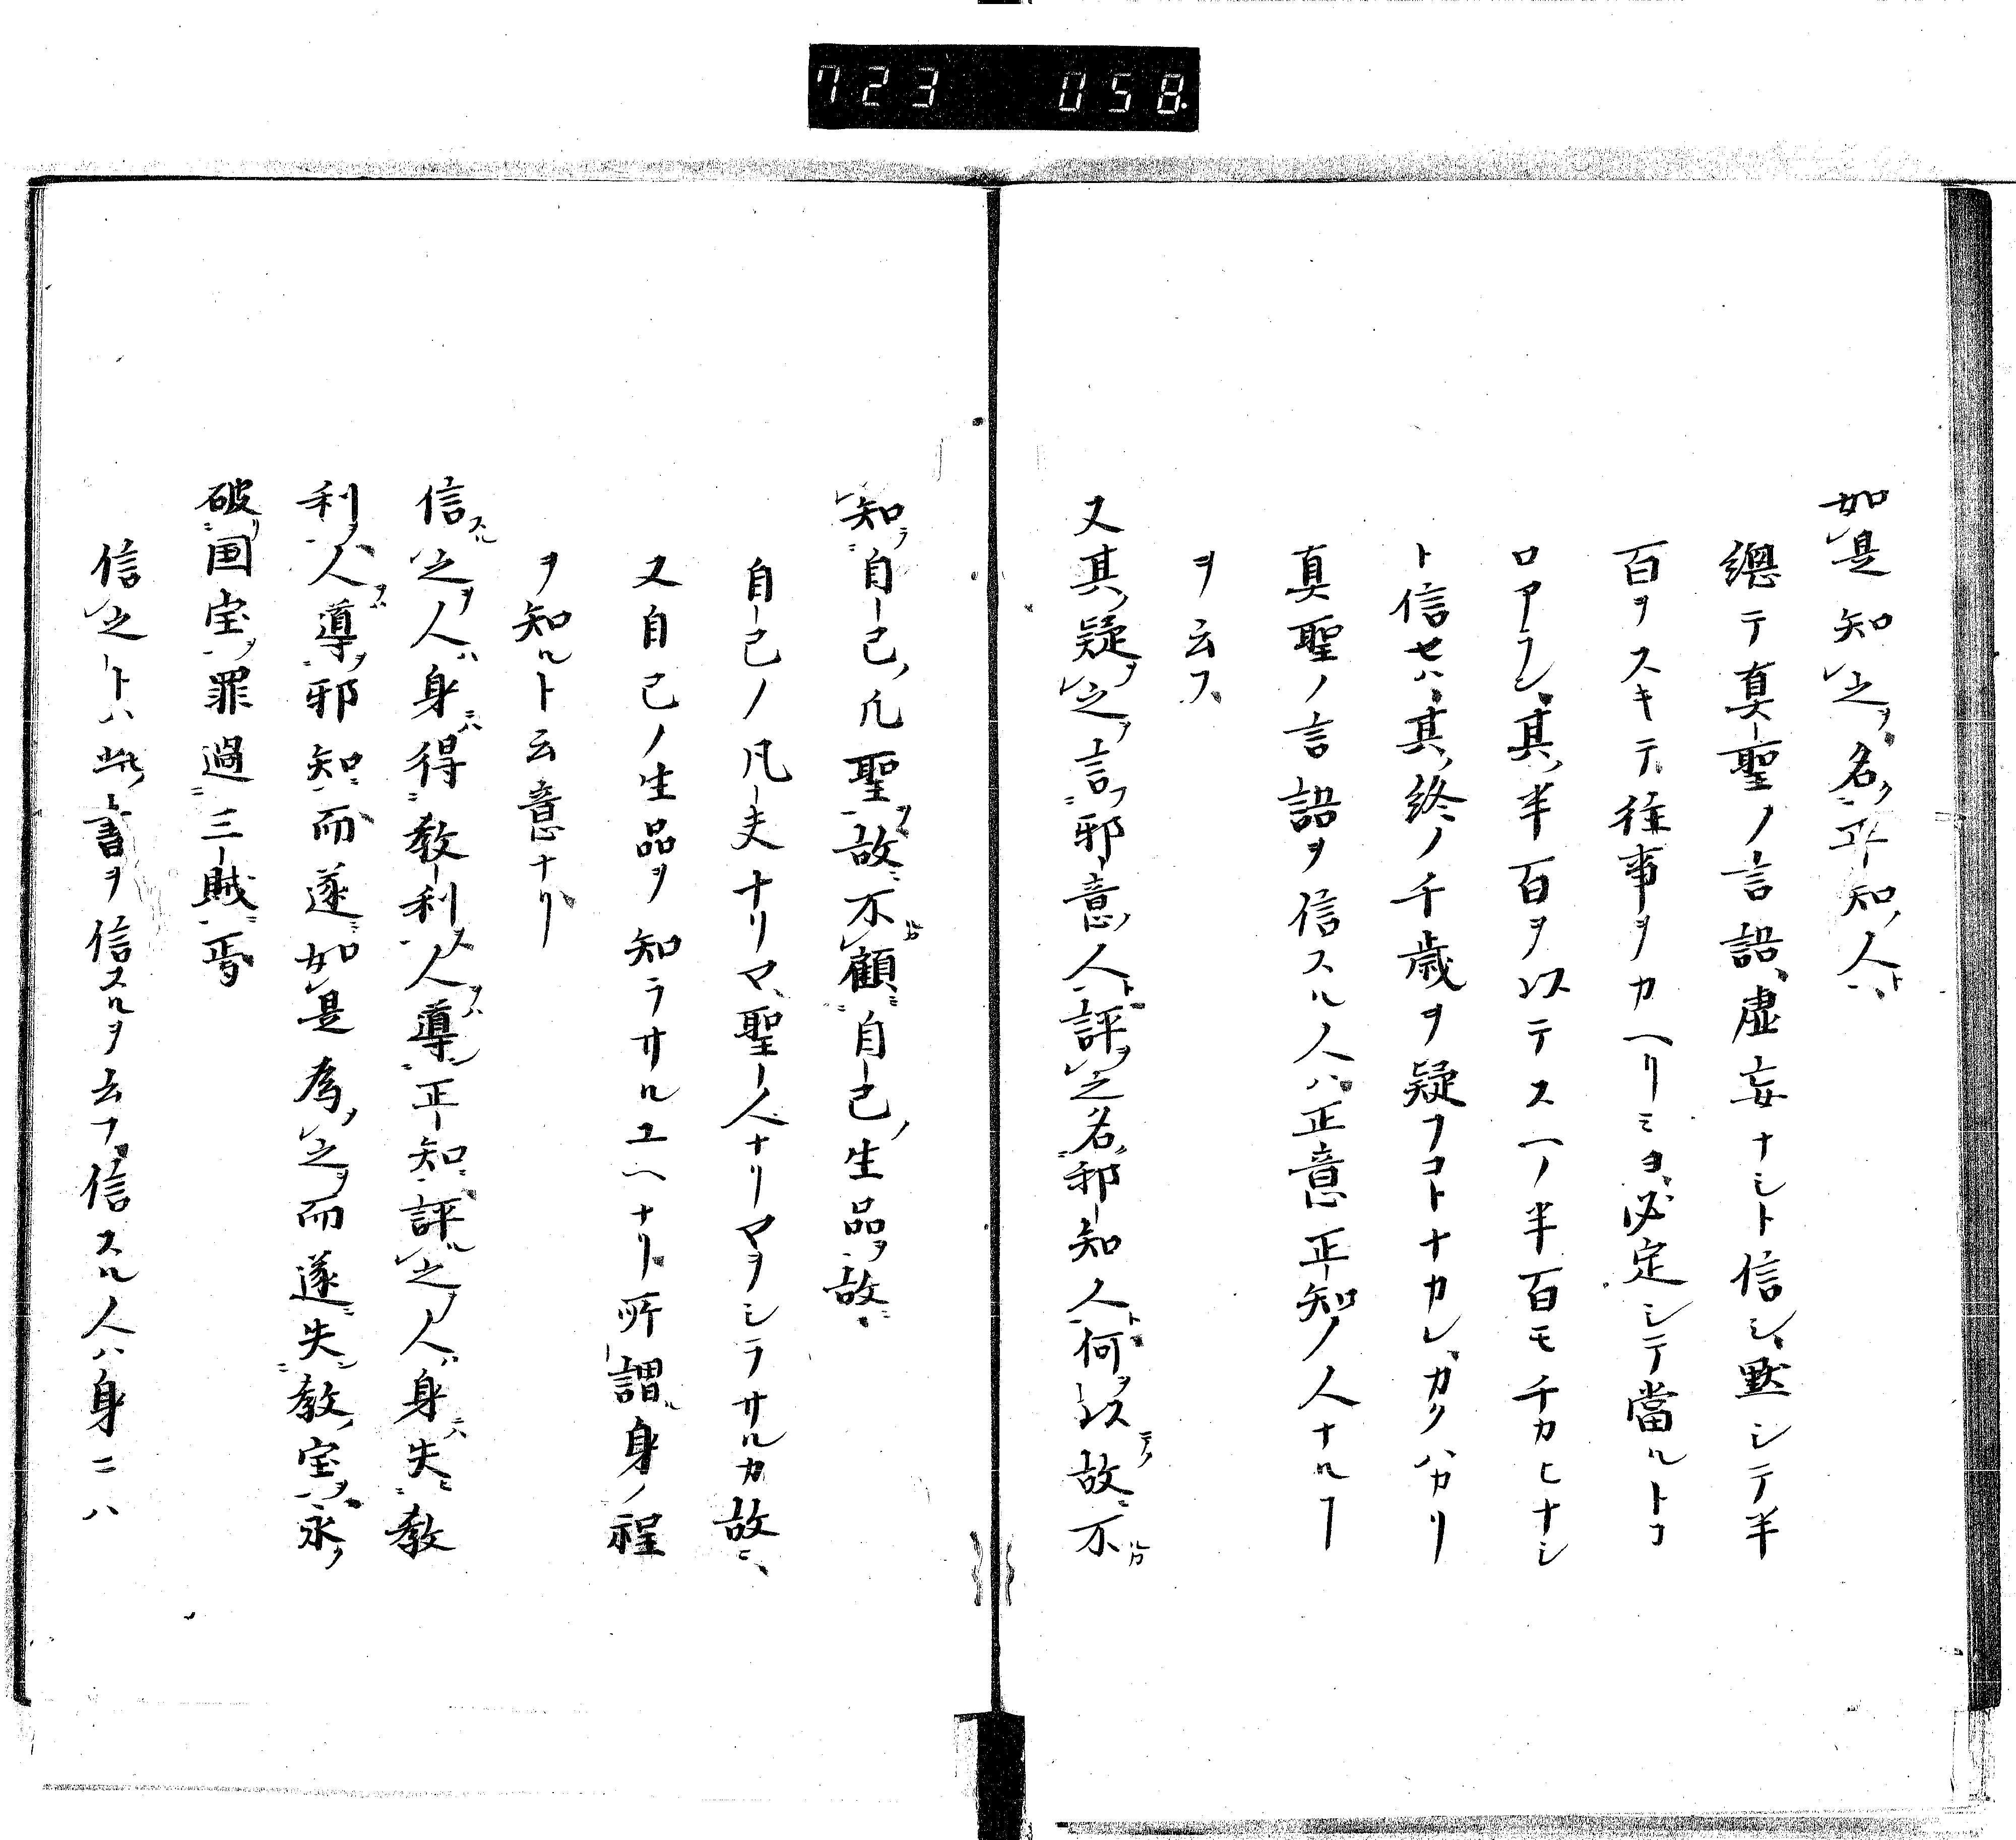 723 058
如是知之ヲ名ク正知ノ人ト
總テ真聖ノ言語、虚妄ナシト信シ、黙シテ半
百ヲスキテ徃事ヲカヘリミヨ、必定シテ當ルトコ
ロアラン、其半百ヲ以テスヘノ半百モチカヒナシ
ト信セハ、其終ノ千歳ヲ疑フコトナカレ、カクハカリ
真聖ノ言語ヲ信スル人ハ正意正知ノ人ナルヿ
ヲ云フ
又其疑之ヲ言フ邪意ノ人ト評之ヲ名邪知人ト何ヲ以テノ故ニ不
知ラ自己ノ凡聖ヲ故ニ不顧ミ自己ノ生品ヲ故ニ
自己ノ凡夫ナリマ、聖人ナリマヲシラサルカ故ニ、
又自己ノ生品ヲ知ラサルユヘナリ、所謂身ノ程
ヲ知ルト云意ナリ
信スル之ヲ人ハ身ニハ得教利ヲ人ヲハ導正知ニ評スル之ヲ人ハ身ニハ失教
利ヲ人ヲハ導邪知ニ而遂ニ如是為之ヲ而遂ニ失教ノ宝ヲ永ク
破リ国宝ヲ罪過三賊ニ焉
信之トハ此書ヲ信スルヲ云フ、信スル人ハ身ニハ